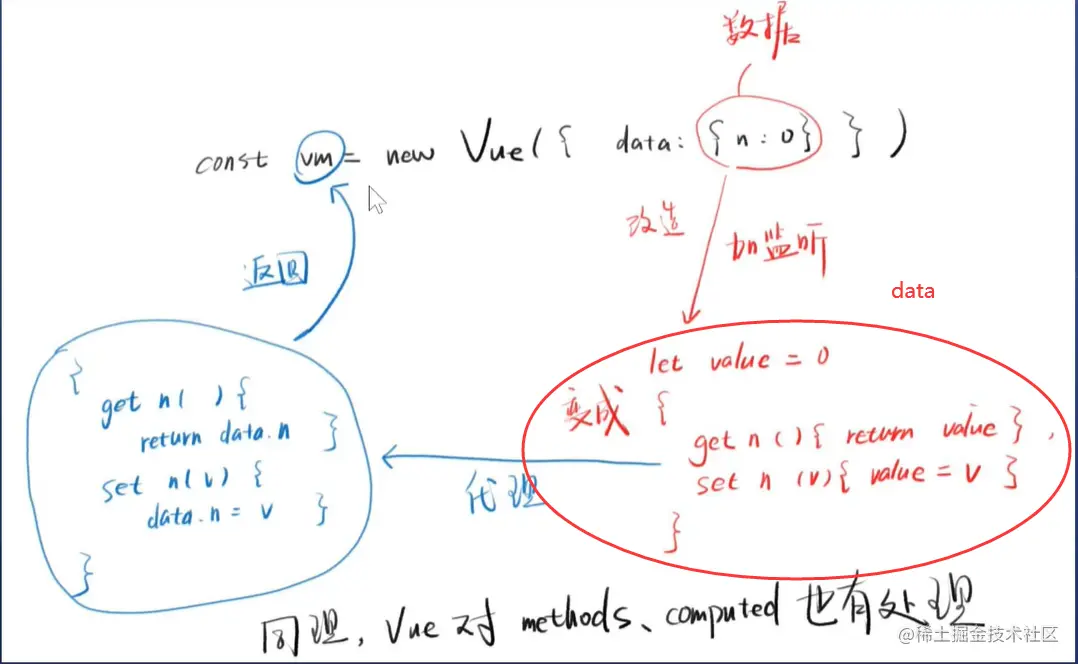 数据
const vm = new Vue({ data: {n:0} })
改造
加监听
返回
data
{
get n( ){
return data.n }
set n(v) {
data.n = v }
}
let value = 0
变成 {
get n(){ return value },
set n(v){ value = v }
}
代理
同理, Vue 对 methods、computed 也有处理
@稀土掘金技术社区